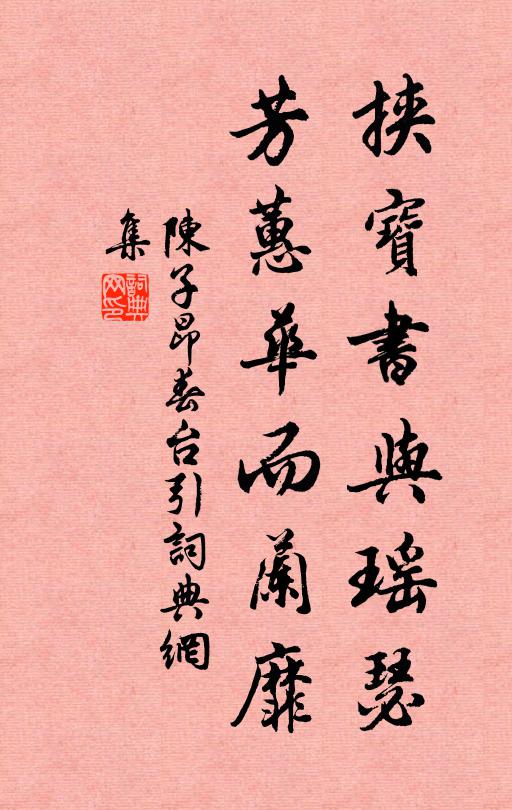 挟寶書與瑶瑟
芳蕙華而蘭靡
陳子昂春台引詞典網
集
詞典網印